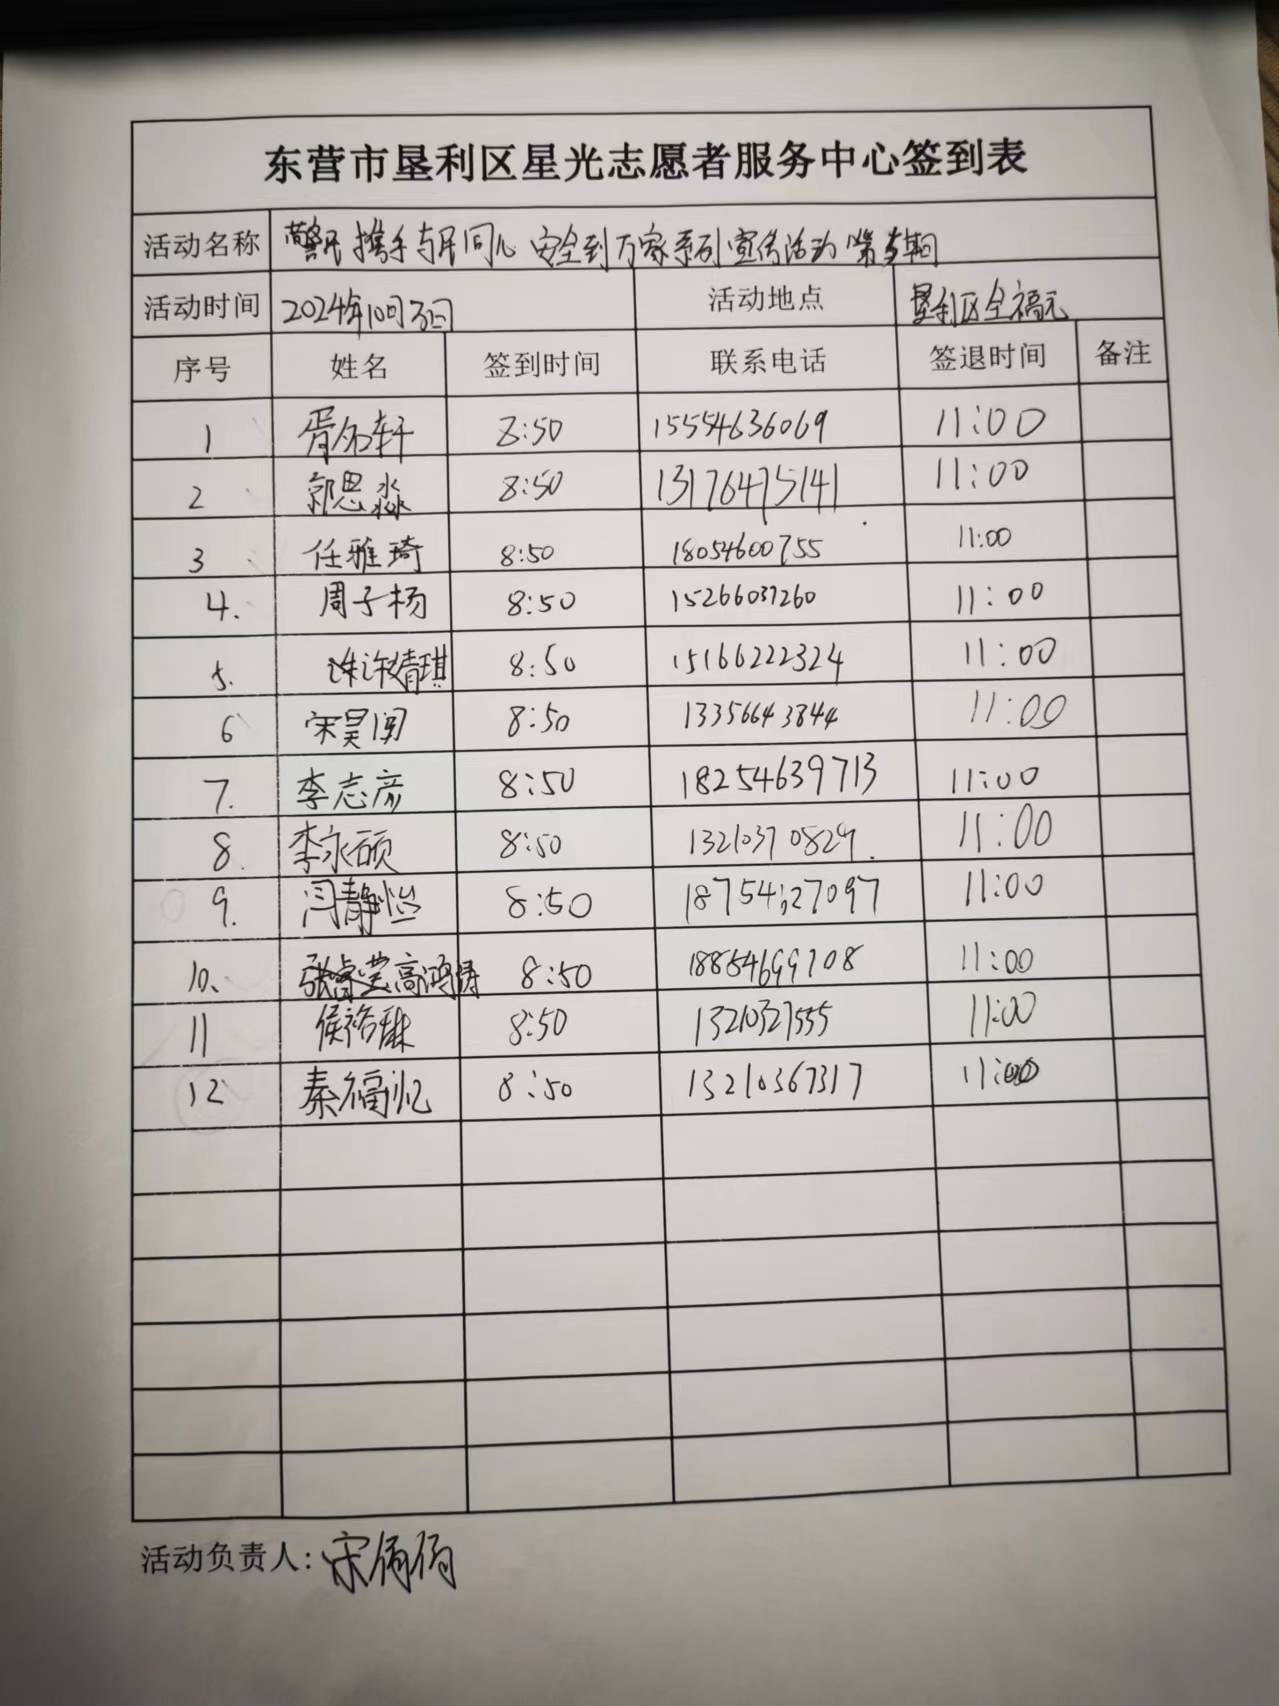 东营市垦利区星光志愿者服务中心签到表
活动名称 警民携手与民同心 安全到万家系列宣传活动 第 期
活动时间 2024年10月3日 活动地点 垦利区全福元
序号 姓名 签到时间 联系电话 签退时间 备注
1 胥 轩 8:50 15554636069 11:00
2 郭思淼 8:50 13176475141 11:00
3 任雅琦 8:50 18054600755 11:00
4. 周子杨 8:50 15266037260 11:00
5. 许婧琪 8:50 15166222324 11:00
6 宋昊 8:50 13356643844 11:00
7. 李志彦 8:50 18254639713 11:00
8. 李永硕 8:50 13210370829. 11:00
9. 闫静怡 8:50 18754627097 11:00
10、 张睿 高鸿涛 8:50 18854699708 11:00
11 侯裕琳 8:50 13210327555 11:00
12 秦福忆 8:50 13210367317 11:00
活动负责人: 宋倩倩